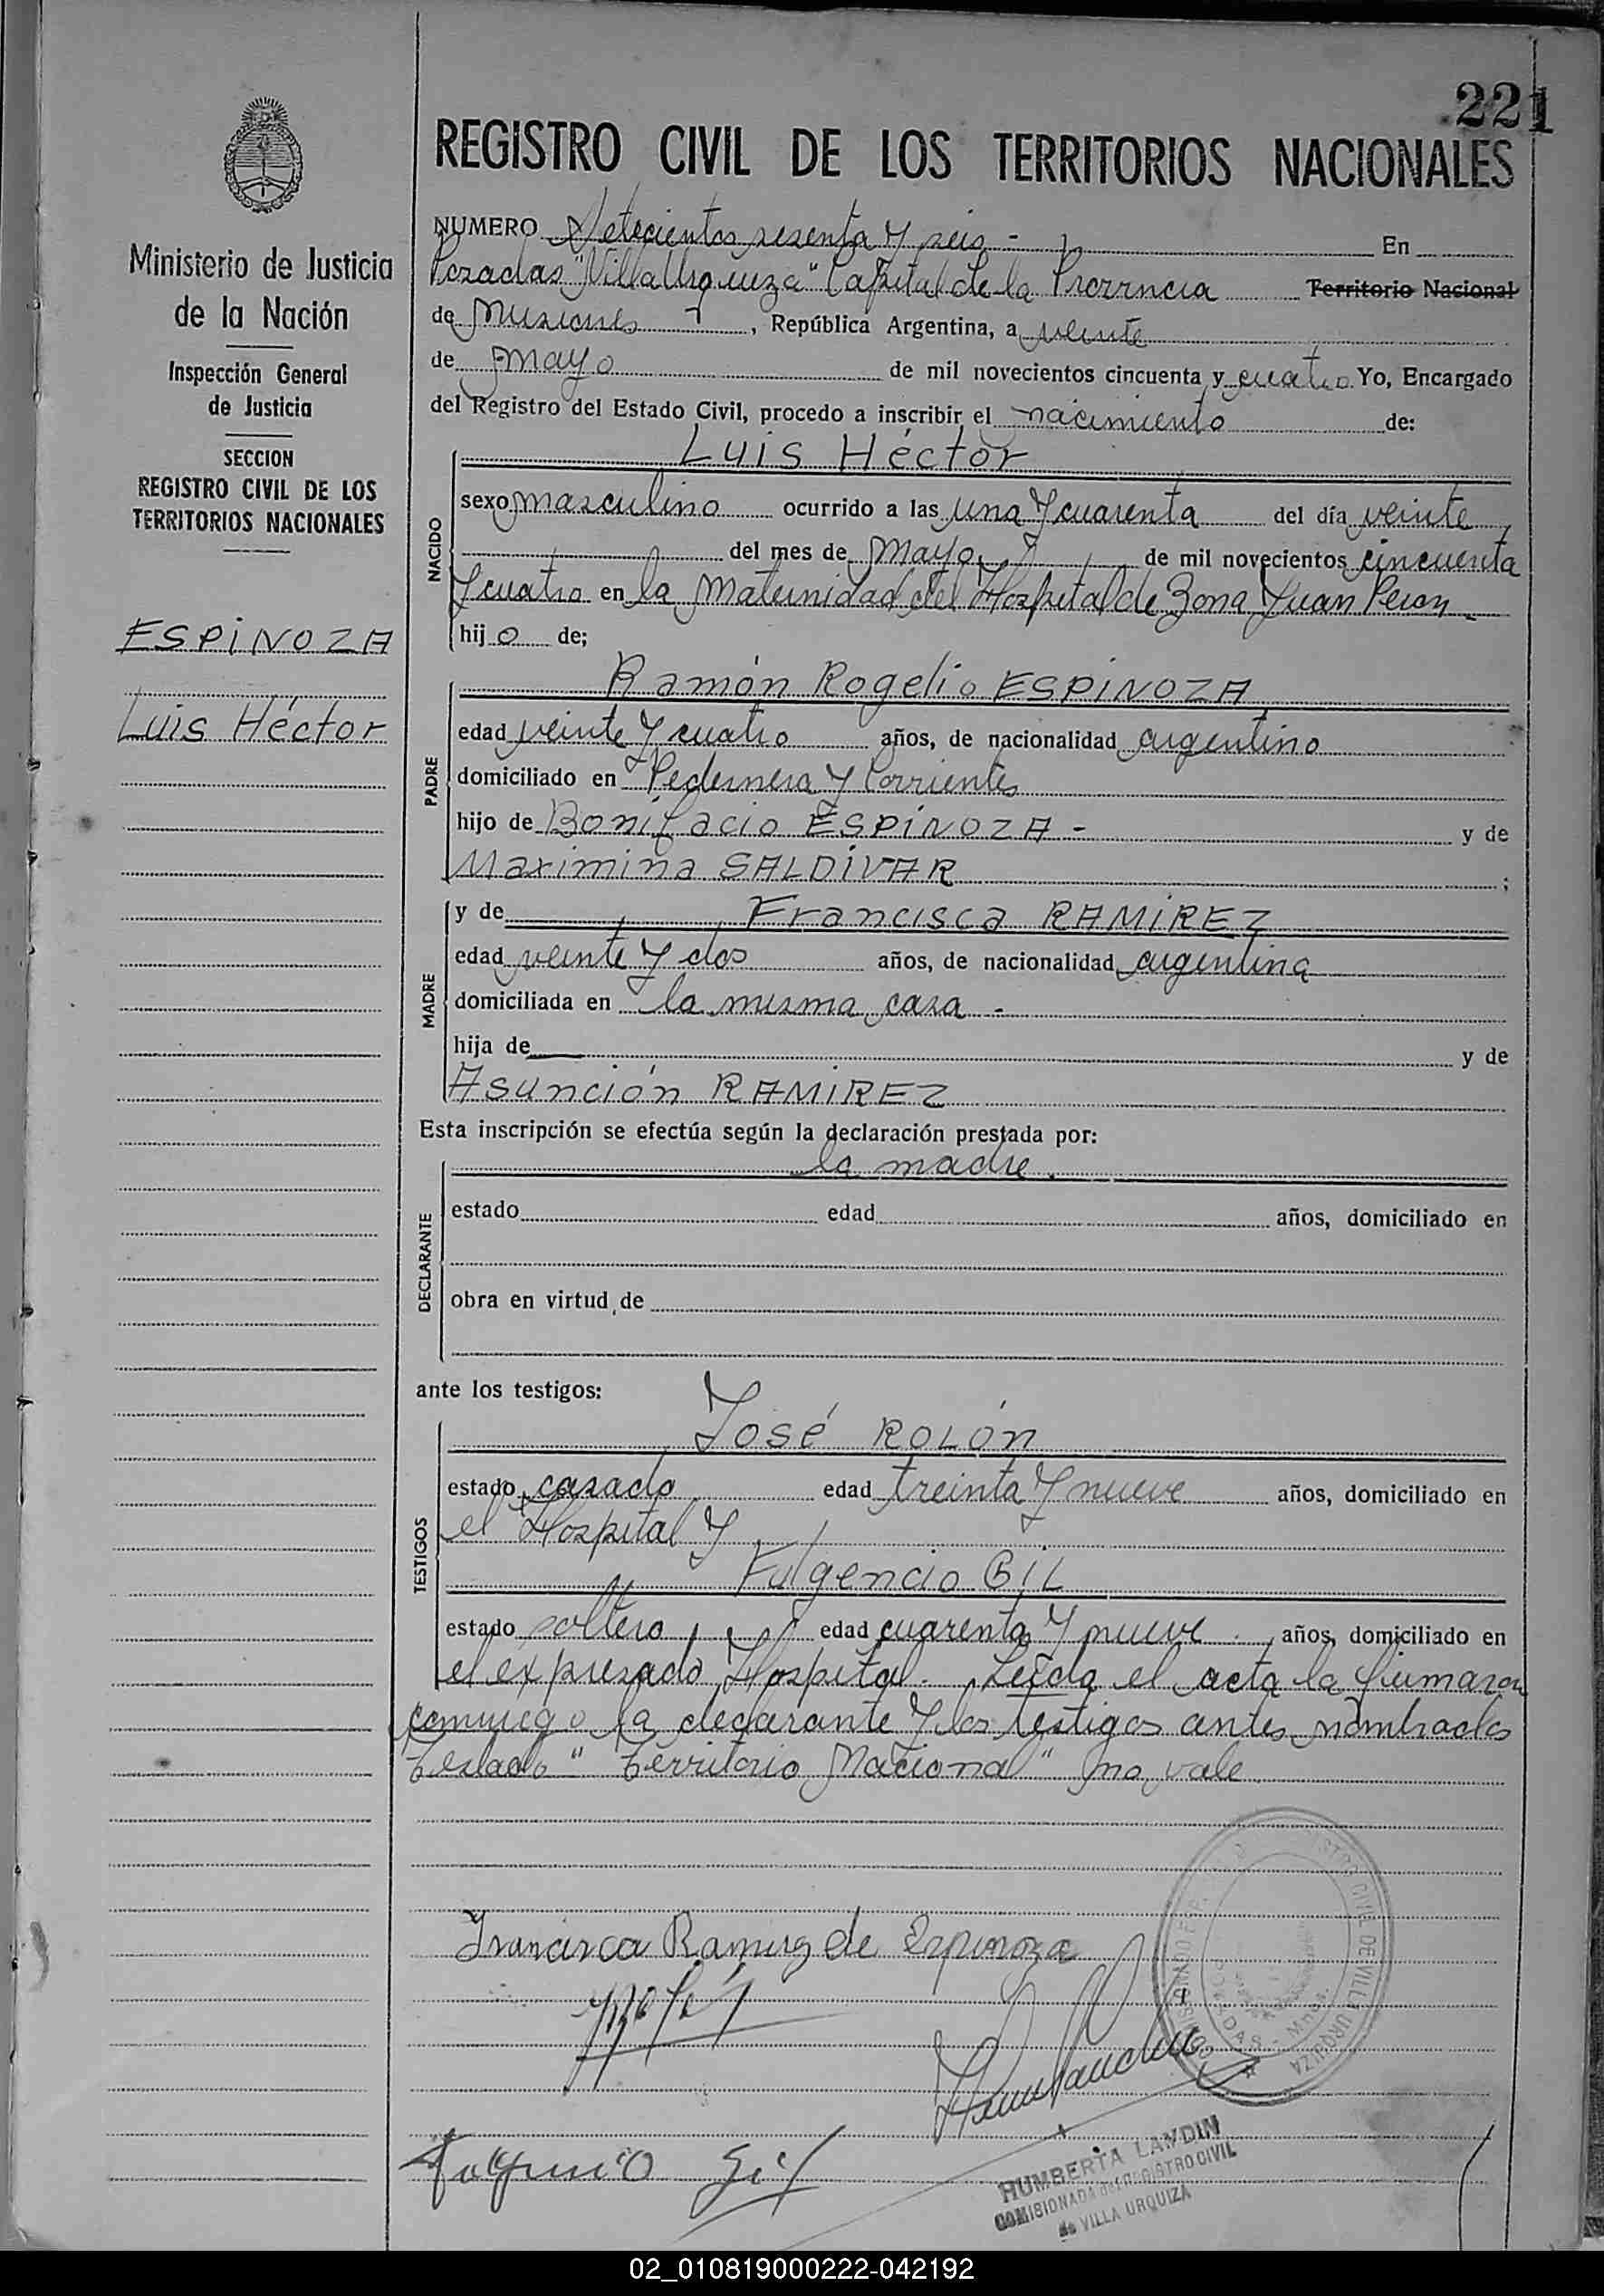 221
REGISTRO CIVIL DE LOS TERRITORIOS NACIONALES
Ministerio de Justicia
de la Nación
Inspección General
de Justicia
SECCION
REGISTRO CIVIL DE LOS
TERRITORIOS NACIONALES
ESPINOZA
Luis Héctor
NUMERO Setecientos sesenta y seis - En
Posadas "Villa Urquiza" Capital de la Provincia Territorio Nacional
de Misiones, República Argentina, a veinte
de mayo de mil novecientos cincuenta y cuatro Yo, Encargado
del Registro del Estado Civil, procedo a inscribir el nacimiento de:
Luis Héctor
NACIDO
sexo masculino ocurrido a las una y cuarenta del día veinte
del mes de mayo de mil novecientos cincuenta
y cuatro en la Maternidad del Hospital de Zona Juan Peron -
hijo de;
Ramón Rogelio ESPINOZA
PADRE
edad veinte y cuatro años, de nacionalidad argentino
domiciliado en Pedernera y Corrientes
hijo de Bonifacio ESPINOZA - y de
Maximina SALDIVAR ;
y de Francisca RAMIREZ
MADRE
edad veinte y dos años, de nacionalidad argentina
domiciliada en la misma casa -
hija de — y de
Asunción RAMIREZ
Esta inscripción se efectúa según la declaración prestada por:
la madre.
DECLARANTE
estado edad años, domiciliado en
obra en virtud de
ante los testigos:
José ROLÓN
TESTIGOS
estado casado edad treinta y nueve años, domiciliado en
el Hospital y
Fulgencio GIL
estado soltero edad cuarenta y nueve años, domiciliado en
el expresado Hospital. Leída el acta la firmaron
conmigo la declarante y los testigos antes nombrados
testado "Territorio Nacional" no vale
Francisca Ramirez de Espinoza
Fulgencio Gil
REGISTRO CIVIL DE VILLA URQUIZA
HUMBERTA LANDIN
COMISIONADA del REGISTRO CIVIL
de VILLA URQUIZA
02_010819000222-042192